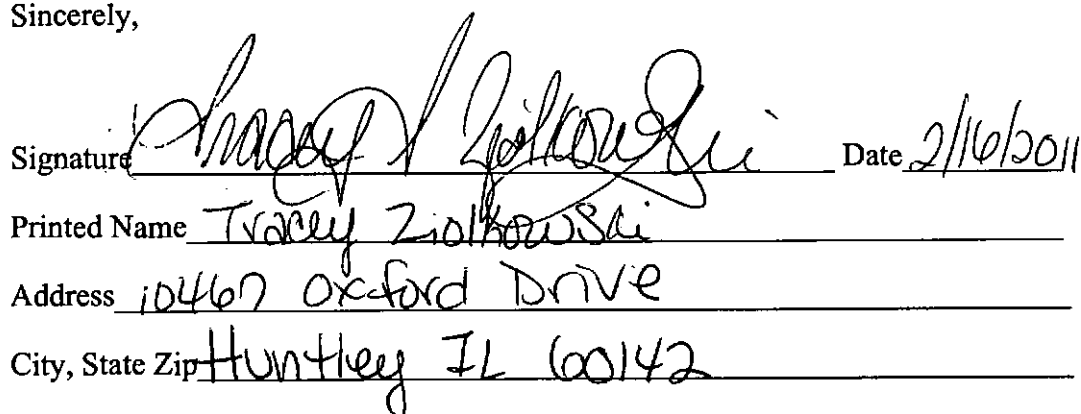 Sincerely,
Signature Tracey Ziolkowski Date 2/16/2011
Printed Name Tracey Ziolkowski
Address 10467 Oxford Drive
City, State Zip Huntley IL 60142